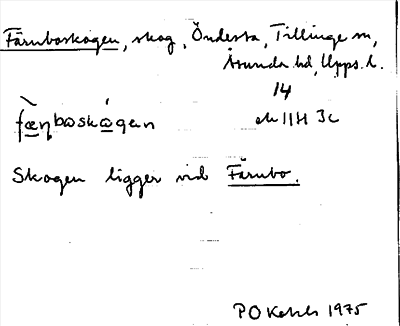 Färnboskogen, skog, Öndesta, Tillinge sn,
Åsunda hd, Upps. l.
14
fæ̀ɳboskógen
ek 11H 3c
Skogen ligger vid Färnbo.
1975